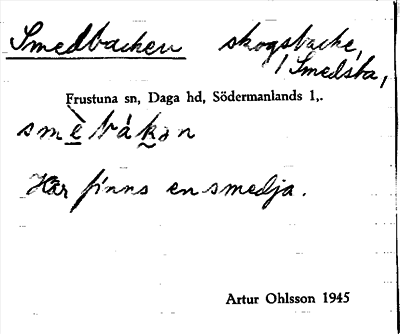 Smedbacken skogsbacke,
i Smedsta,
Frustuna sn, Daga hd, Södermanlands l,.
smèbákən
Här finns en smedja.
Artur Ohlsson 1945